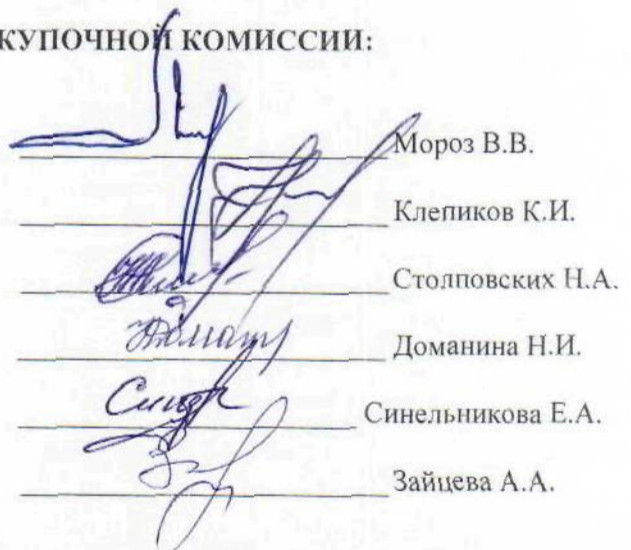 КУПОЧНОЙ КОМИССИИ:
Мороз В.В.
Клепиков К.И.
Столповских Н.А.
Доманина Н.И.
Синельникова Е.А.
Зайцева А.А.